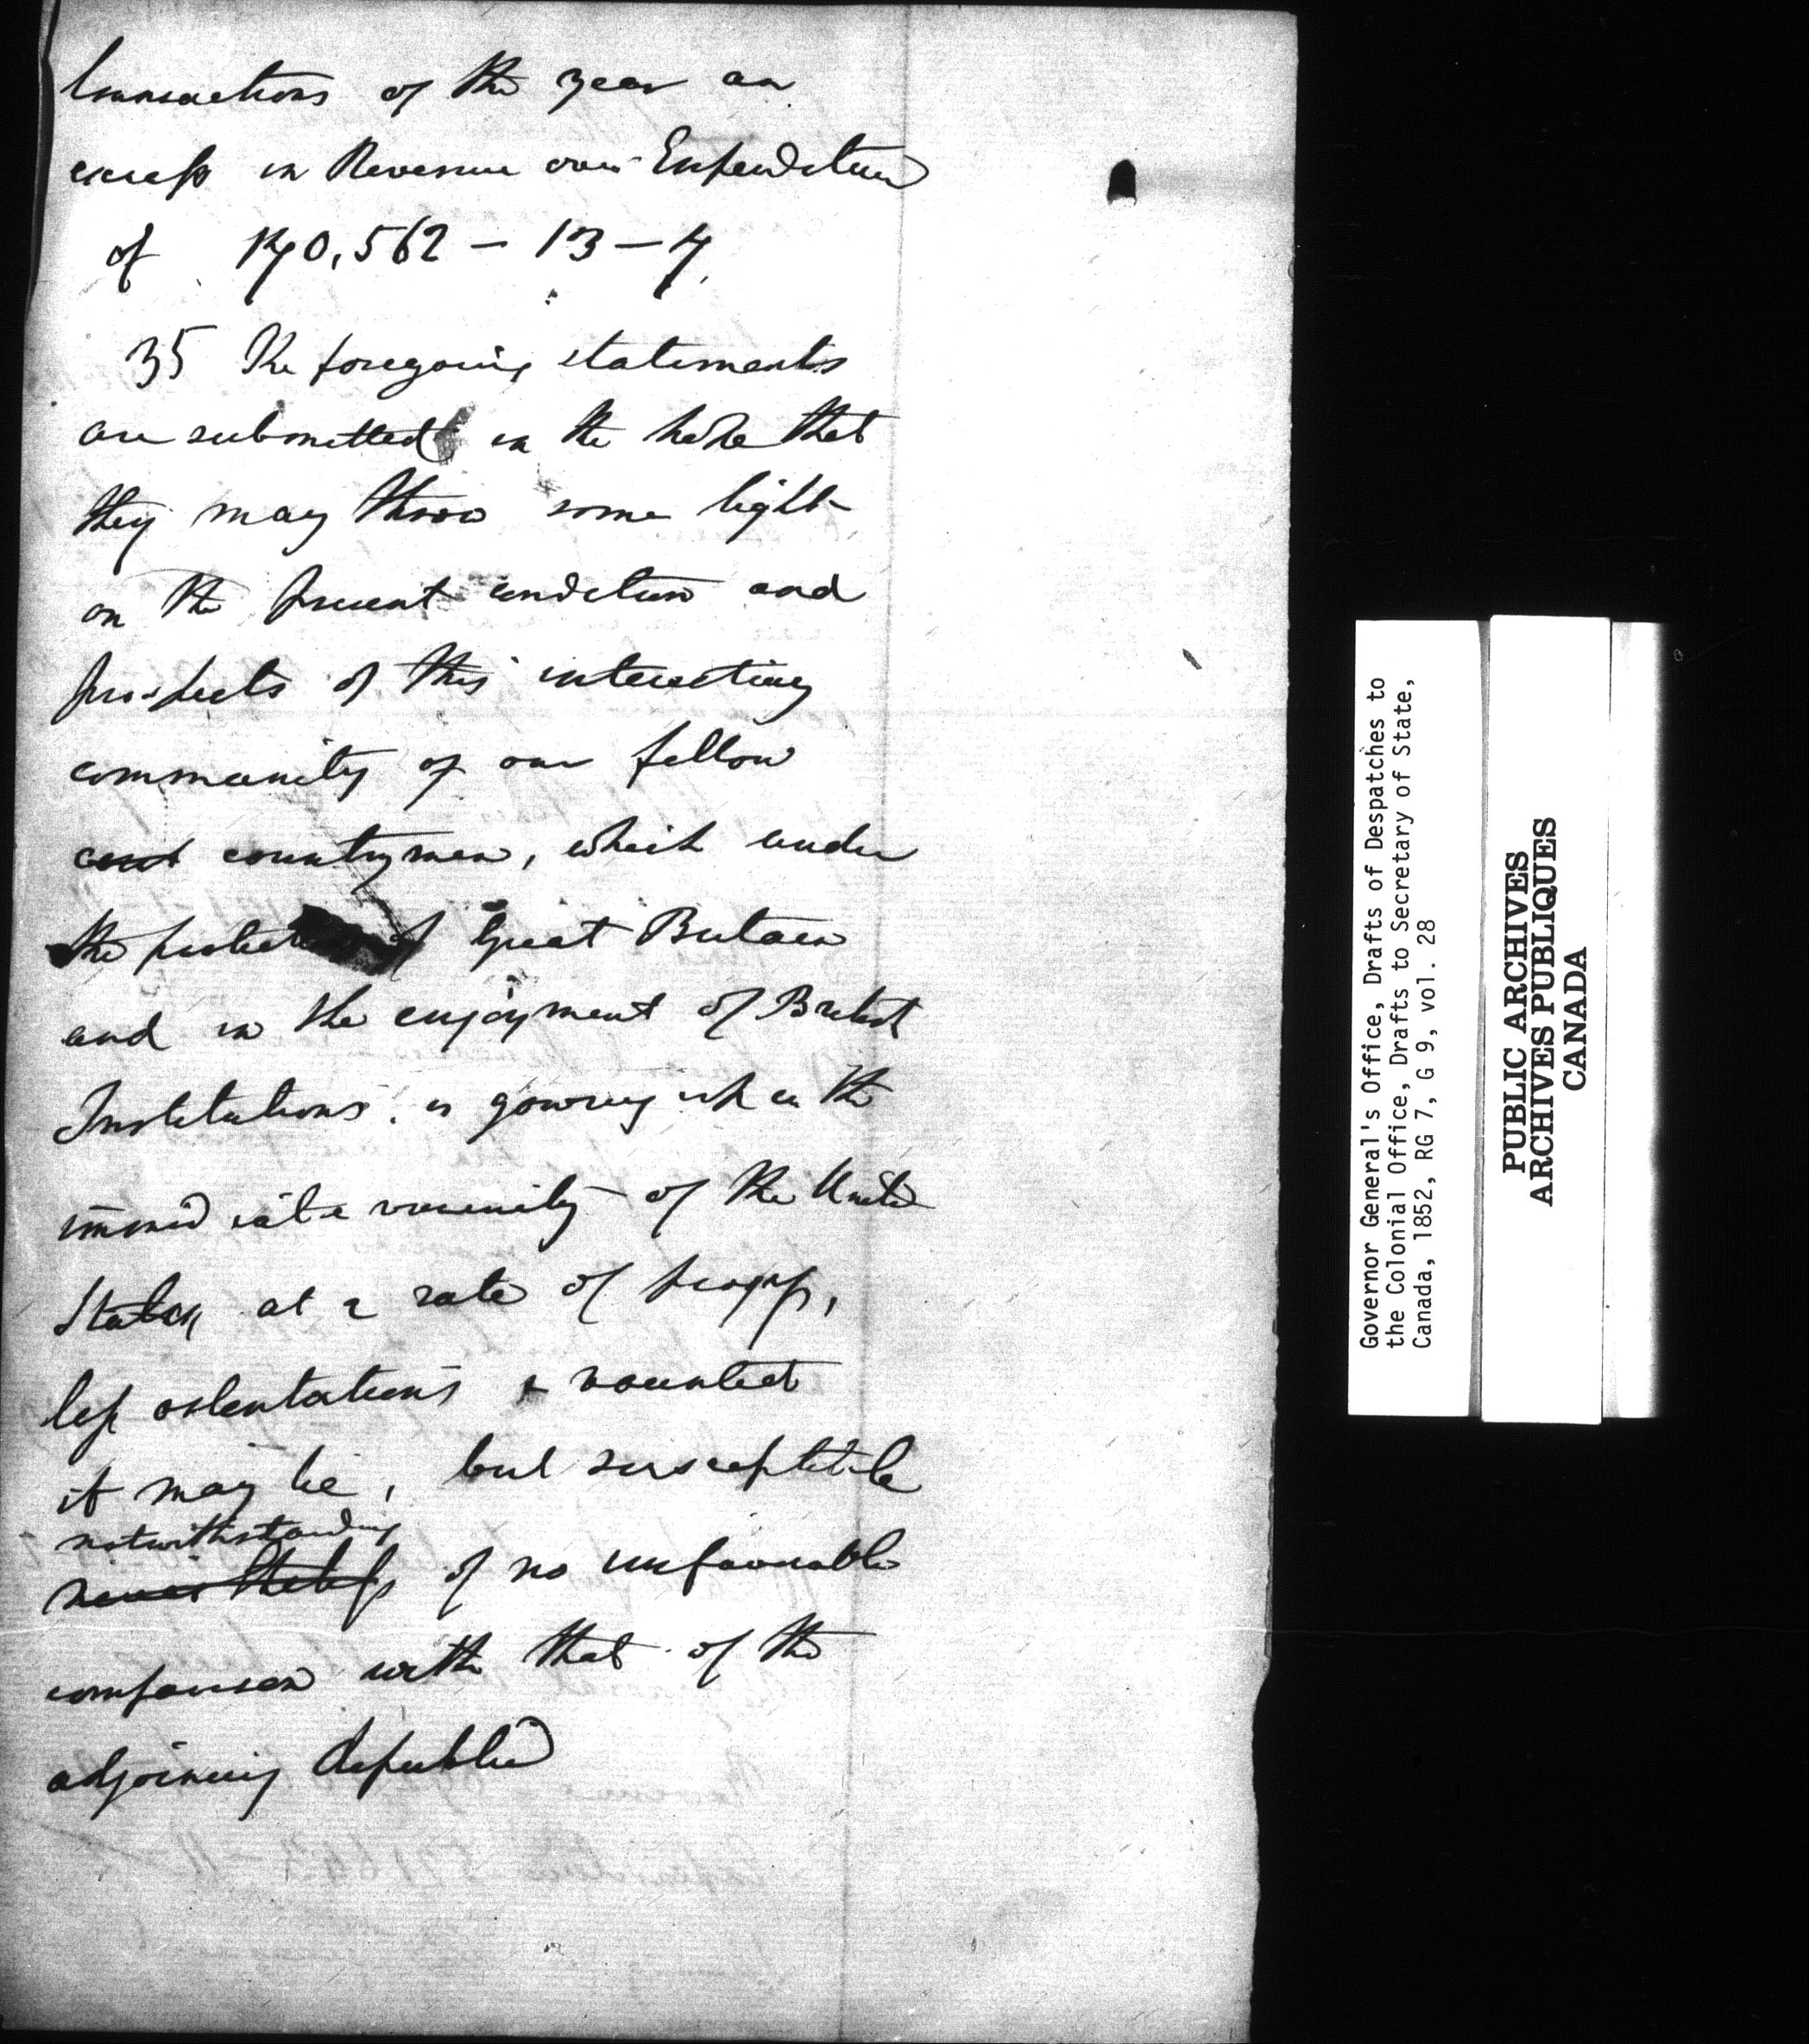 transactions of the year an
excess in Revenue over Expenditure
of 190,562 – 13 – 4.
35 The foregoing statements
are submitted in the hope that
they may throw some light
on the present condition and
prospects of this interesting
community of our fellow
countrymen, which under
the protection of Great Britain
and in the enjoyment of British
Institutions, is growing up in the
immediate vicinity of the United
States at a rate of progress,
less ostentatious & vaunted
it may be, but susceptible
notwithstanding
nevertheless of no unfavourable
comparison with that of the
adjoining Republic
Governor General's Office, Drafts of Despatches to
the Colonial Office, Drafts to Secretary of State,
Canada, 1852, RG 7, G 9, vol. 28
PUBLIC ARCHIVES
ARCHIVES PUBLIQUES
CANADA